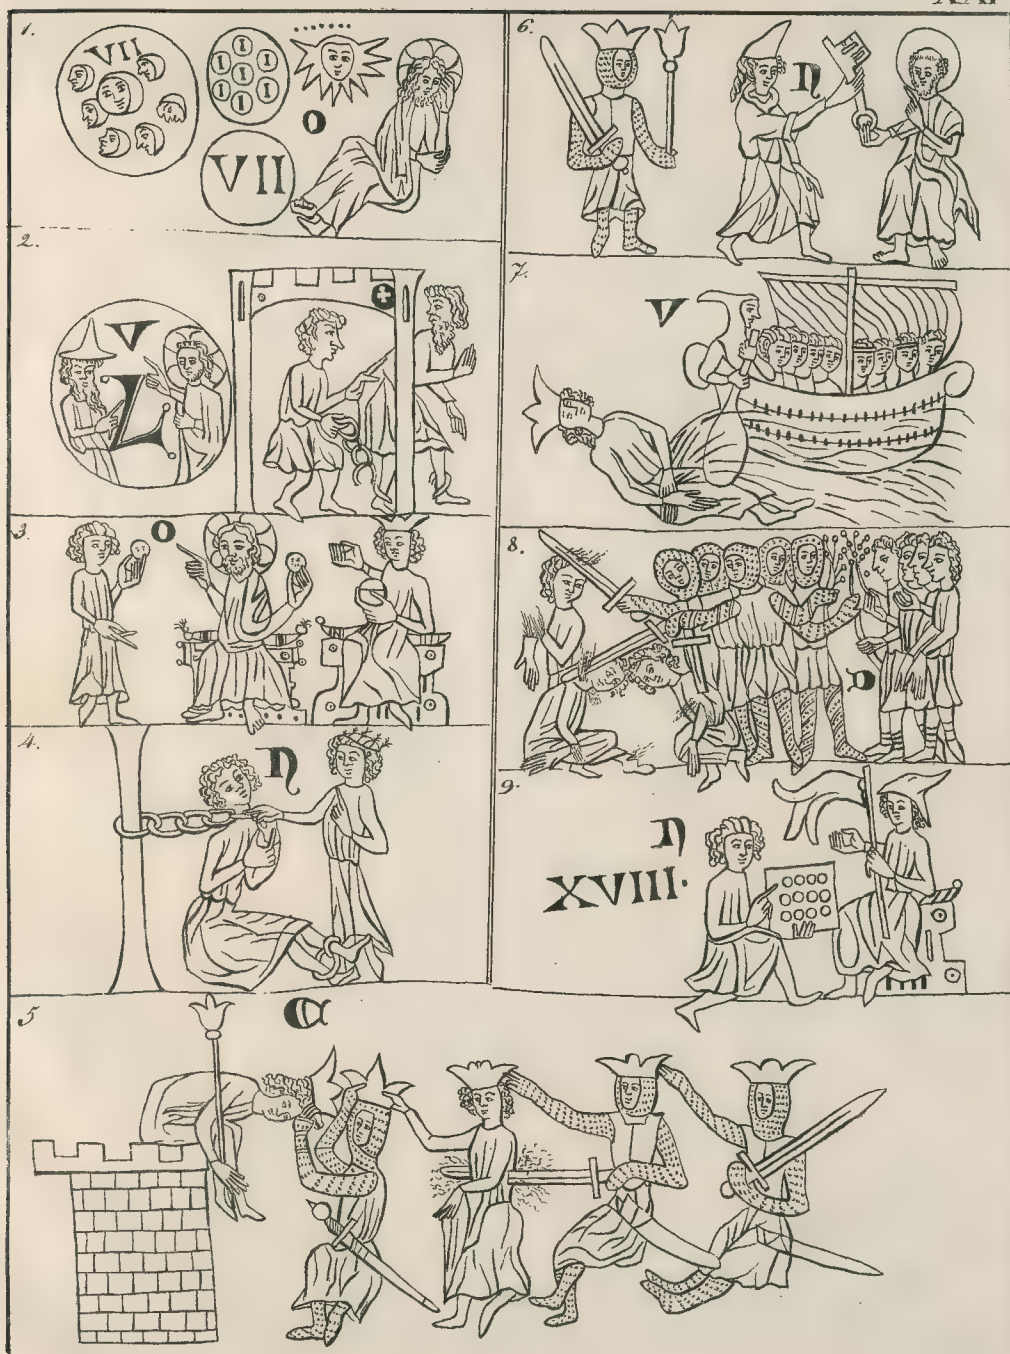 1.
VII
I I I I I I I
O
VII
2.
V
L
3.
O
4.
N
5
C
6.
N
7.
V
8.
D
9.
N
XVIII.